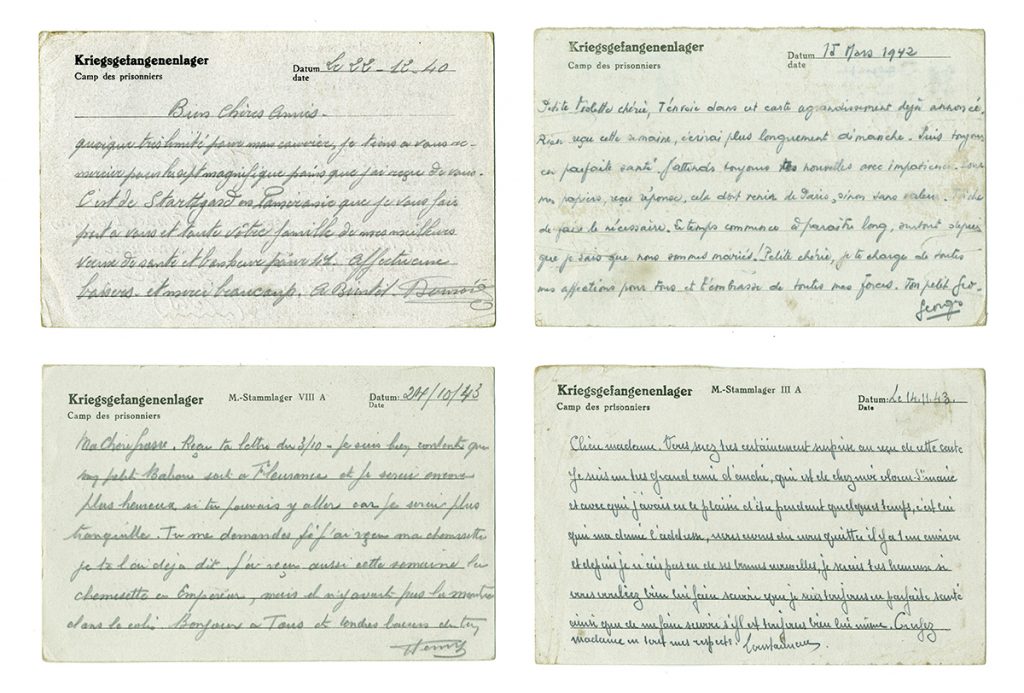 Kriegsgefangenenlager
Camp des prisonniers
Datum Le 22-12-40
date
Bien Chères Amies-
quoique très limité pour mon courrier, je tiens a vous re-
mercier pour le magnifique que j'ai reçu de vous.
C'est de Stargard en que je vous fais
part a vous et toute vôtre famille de mes meilleurs
vœux de santé et bonheur 41. Affectueux
baisers et merci beaucoup. A Bientôt
Kriegsgefangenenlager
Camp des prisonniers
Datum 15 Mars 1942
date
Petite chérie, T'envoie dans cet carte agrandissement déjà annoncé.
Rien reçu cette semaine, écrirai plus longuement dimanche. Suis toujours
en parfaite santé. J'attends toujours tes nouvelles avec impatience. Pour
mes papiers, reçu réponse, cela doit venir de Paris, sinon sans valeur. Tâche
de faire le nécessaire. Le temps commence à paraître long, surtout depuis
que je sais que nous sommes mariés. Petite chérie, je te charge de toutes
mes affections pour tous et t'embrasse de toutes mes forces. Ton petit Geo-
Georges
Kriegsgefangenenlager M.-Stammlager VIII A
Camp des prisonniers
Datum: 24/10/43
Date
Ma Chère . Reçu ta lettre du 3/10 - je suis bien content que
mon petit soit a Fleurance et je serais encore
plus heureux si tu pouvais y aller car je serai plus
tranquille. Tu me demandes si j'ai reçu ma chemisette
je te l'ai déja dit. J'ai reçu aussi cette semaine la
chemisette en , mais il n'y avait pas la montre
dans le colis Bonjour a Tous et tendres baisers
Henry
Kriegsgefangenenlager M.-Stammlager III A
Camp des prisonniers
Datum: Le 14.11.43.
Date
Chère madame. Vous serez très certainement surprise au reçu de cette carte
Je suis un très grand ami d'andré, qui est de chez
et avec qui j'avais eu le plaisir d'être pendant quelques temps, c'est lui
qui m'a donné l'addresse, nous avons du nous quitter il y a 1 an environ
et depuis je n'ai pas eu de ses bonnes nouvelles, je serais très heureux si
vous vouliez bien lui faire savoir que je suis toujours en parfaite santé
ainsi que de me faire savoir s'il est toujours bien lui même. Croyez
madame en tout mes respects.